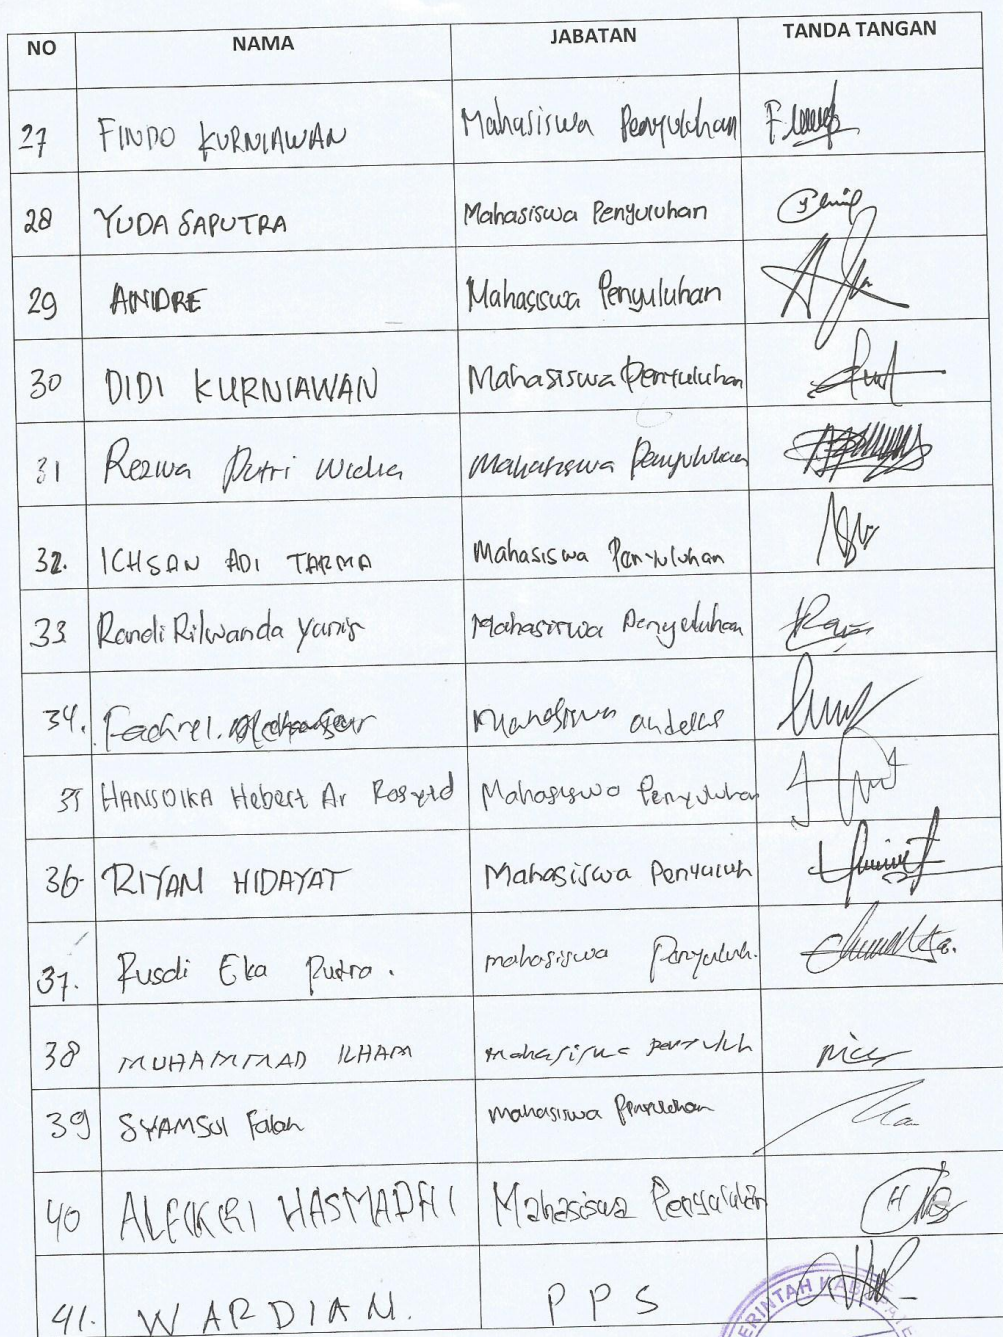 NO NAMA JABATAN TANDA TANGAN
27 FINDO KURNIAWAN Mahasiswa Penyuluhan
28 YUDA SAPUTRA Mahasiswa Penyuluhan
29 ANDRE Mahasiswa Penyuluhan
30 DIDI KURNIAWAN Mahasiswa Penyuluhan
31 Rezwa Putri Widia Mahasiswa Penyuluhan
32. ICHSAN ADI TARMA Mahasiswa Penyuluhan
33 Randi Rilwanda Yunis Mahasiswa Penyuluhan
34. Fachrel. Mahasiswa andalas
35 HANSDIKA Hebert Ar Rosyid Mahasiswa Penyuluhan
36 RIYAN HIDAYAT Mahasiswa Penyuluh
37. Rusdi Eka Putra. mahasiswa Penyuluh.
38 MUHAMMAD ILHAM mahasiswa penyuluh
39 SYAMSUL Falah mahasiswa Penyuluhan
40 ALFIKRI HASMADHI Mahasiswa Penyuluhan
41. WARDIAN. PPS